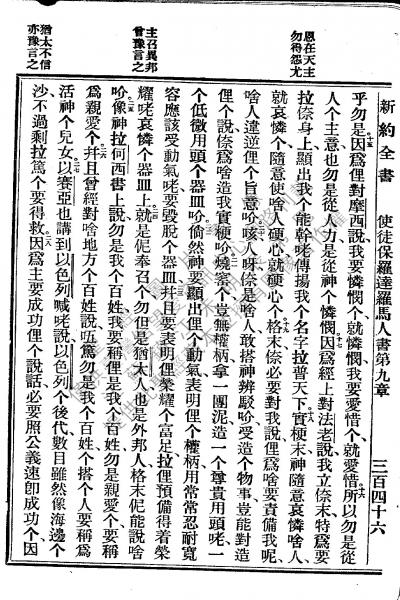 新約全書　使徒保羅達羅馬人書第九章　三百四十六
恩在天主
勿得怨尤
主召異邦
曾豫言之
猶太不信
亦豫言之
乎勿是、因爲俚對摩西說、我要憐憫个、就憐憫、我要愛惜个、就愛惜、所以勿是從
人个主意、也勿是從人力、是從神个憐憫、因爲經上對法老說、我立倷末、特爲要
拉倷身上、顯出我个能幹咾、傳揚我个名字拉普天下、實梗末神隨意哀憐人、
就哀憐个、隨意使啥人硬心、就硬心个、格末倷必要對我說、俚爲啥要責備我呢、
啥人違逆俚个旨意吤、咳人呀、倷是啥人、敢搭神辨駁吤、受造个物事、豈能對造
俚个說、倷爲啥造我實梗吤、燒窑个豈無權柄、拿一團泥、造一个尊貴用頭咾、一
个低微用頭个器皿吤、倘然神要顯出俚个動氣、表明俚个權柄、用常常忍耐寬
容應該受動氣咾要毀脫个器皿、幷且要表明俚榮耀个富足、拉俚預備得着榮
耀咾哀憐个器皿上、就是伲奉召个、勿但是猶太人、也是外邦人、格末伲能說啥
吤、像神拉何西書上說、勿是我个百姓、我要稱俚是我个百姓、勿是親愛个、要稱
爲親愛个、幷且曾經對啥地方个百姓說、勿是我个百姓个、搭个人要稱爲
活神个兒女、以賽亞也講到以色列、喊咾說、以色列个後代、數目雖然像海邊个
沙、不過剩拉篤个要得救、因爲主要成功俚个說話、必要照公義速卽成功个、因